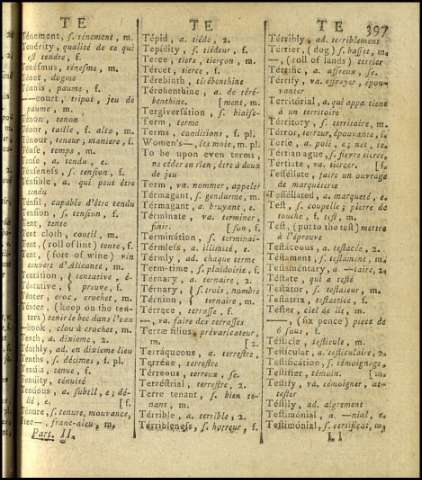 TE
TE
TE
397
Ténement, s. ténement, m.
qualité de ce qui
est tendre, f.
ténesme, m.
dogme
paume, f.
—court, tripot, jeu de
paume, m.
tenon
taille, f. alto, m.
teneur, maniere, f.
temps, m.
a. tendu, e.
s. tension, f.
a. qui peut être
tendu
capable d'être tendu
s. tension, f.
tente
cloth, m.
(roll of lint) tente, f.
(sort of wine) vin
couvert d'Alicante, m.
tentative, é-
preuve, f.
croc, crochet, m.
(keep on the ten-
ters) tenir le bec dans l'eau
clou à crochet, m.
a. dixieme, 2.
ad. en dixieme lieu
s. décimes, f. pl.
tenue, f.
ténuité
a. subtil, e; dé-
lié, e. [f.
s. tenure, mouvance,
franc-aleu, m.
Part. II.
Tépid, a. tiede, 2.
Tepídity, s. tiédeur, f.
Terce, tiers, tierçon, m.
Tércet, tierce, f.
Térebinth, térébenthine
Térebenthine, a. de téré-
benthine. [ment, m.
Tergiversátion, s. biaise-
Term, terme
Terms, conditions, f. pl.
Women's—, les mois, m. pl.
To be upon even terms,
ne céder en rien, être à deux
de jeu
Term, va. nommer, appeler
Térmagant, s. gendarme, m.
Térmagant, a. bruyant, e.
Términate, va. terminer,
finir. [son, f.
Terminátion, s. terminai-
Térmless, a. illimité, e.
Térmly, ad. chaque terme
Term-time, s. plaidoirie, f.
Térnary, a. ternaire, 2.
Térnary, { s. trois, nombre
Térnion, { ternaire, m.
Térrace, terrasse, f.
—, va. faire des terrasses
Terræ filius, prévaricateur,
m. [2.
Terráqueous, a. terrestre,
Terréne, terrestre
Térreous, terreux, se.
Terréstrial, terrestre, 2.
Terre tenant, s. bien te-
nant, m.
Térrible, a. terrible, 2.
Térribleness, s. horreur, f.
Térribly, ad. terriblement
Térrier, (dog) s. basset, m.
—, (roll of lands) terrier
Terrífic, a. affreux, se.
Térrify, va. effrayer, épou-
vanter
Territórial, a. qui appartient
à un territoire
Térritory, s. territoire, m.
Térror, terreur, épouvante, f.
Terse, a. poli, e; net, te.
Tértian ague, s. fievre tierce,
Tertiate, va. tiercer. [f.
Tésselate, faire un ouvrage
de marqueterie
Tésselated, a. marqueté, e.
Test, s. coupelle; pierre de
touche, f. test, m.
Test, (put to the test) mettre
à l'épreuve
Testáceous, a. testacée, 2.
Téstament, s. testament, m.
Testaméntary, a. —taire, 2.
Téstate, qui a testé
Testátor, s. testateur, m.
Testátrix, testatrice, f.
Téster, ciel de lit, m.
—, (six pence) piece de
6 sous, f.
Tésticle, testicule, m.
Testícular, a. testiculaire, 2.
Testificátion, s. témoignage,
Testifíer, témoin. [m.
Téstify, va. témoigner, at-
tester
Téstily, ad. aigrement
Testimónial, a. —nial, e.
Testimónial, s. certificat, m.
L l